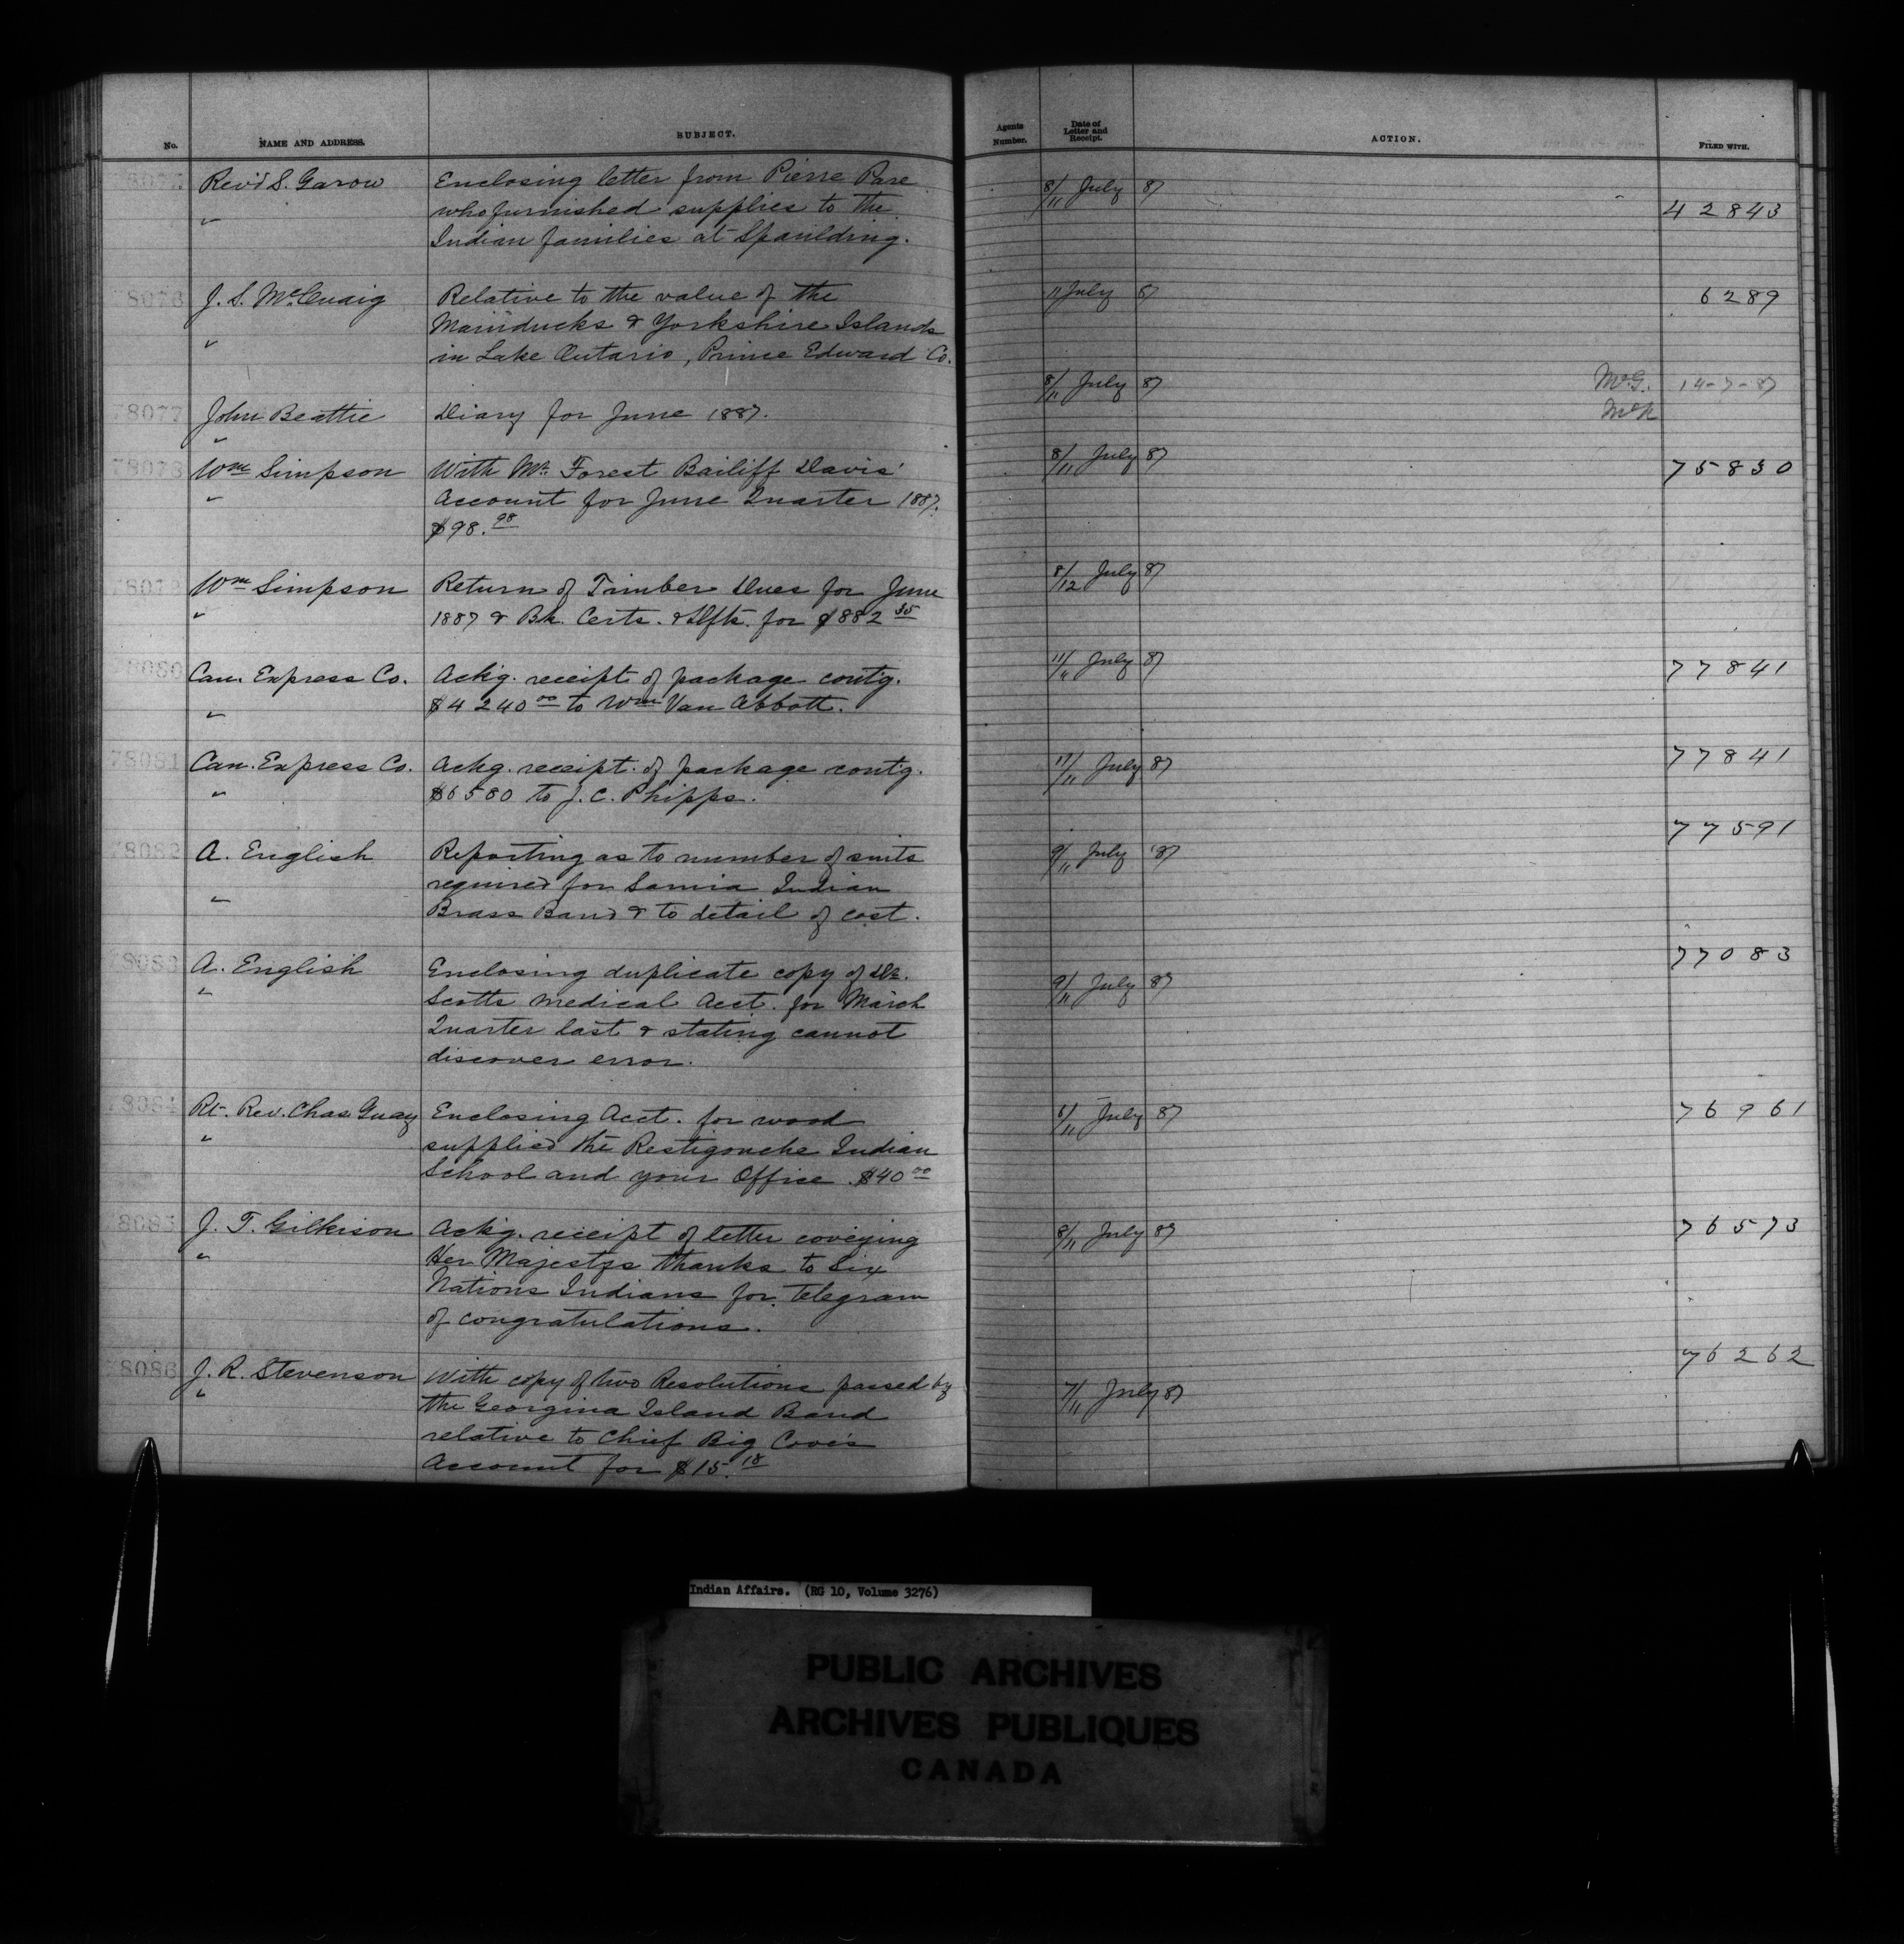 No. NAME AND ADDRESS. SUBJECT. Agents Number. Date of Letter and Receipt. ACTION. FILED WITH.
78075 Rev'd S. Garow Enclosing letter from Pierre Pare 8/11 July 87
" who furnished supplies to the 42843
Indian families at Spaulding.
78076 J. S. McCuaig Relative to the value of the 11 July 87 6289
Mainducks & Yorkshire Islands
" in Lake Ontario, Prince Edward Co.
8/11 July 87 McG. 14-7-87
78077 John Beattie Diary for June 1887. McN
"
78078 Wm Simpson With Mr. Forest Bailiff Davis' 8/11 July 87 75830
" Account for June Quarter 1887.
$98.98
78079 Wm Simpson Return of Timber Dues for June 8/12 July 87
" 1887 & Bk. Certs. & Dfts. for $882 35
78080 Can. Express Co. Ackg. receipt of package contg. 11/11 July 87 77841
" $4240 00 to Wm Van Abbott.
78081 Can. Express Co. Ackg. receipt of package contg. 11/11 July 87 77841
" $6580 to J. C. Phipps.
78082 A. English Reporting as to number of suits 9/11 July '87 77591
required for Sarnia Indian
" Brass Band & to detail of cost.
78083 A. English Enclosing duplicate copy of Dr. 9/11 July 87 77083
" Scotts medical Acct. for March
Quarter last & stating cannot
discover error.
78084 Rt. Rev. Chas Guay Enclosing Acct. for wood 6/11 July 87 76961
" supplied the Restigouche Indian
School and your Office. $40 00
78085 J. T. Gilkison Ackg. receipt of letter coveying 8/11 July 87 76573
" Her Majestys thanks to Six
Nations Indians for telegram
of congratulations.
78086 J. R. Stevenson With copy of two Resolutions passed by 7/11 July 87 76262
" the Georgina Island Band
relative to Chief Big Cove's
Account for $15.18
Indian Affairs. (RG 10, Volume 3276)
PUBLIC ARCHIVES
ARCHIVES PUBLIQUES
CANADA